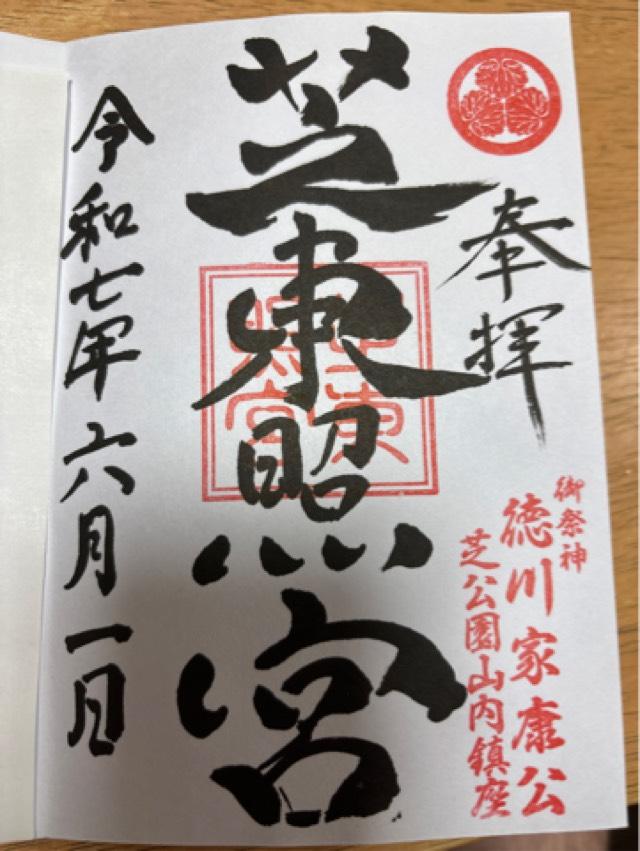 奉拝
御祭神
徳川家康公
芝公園山内鎮座
芝東照宮
芝東照宮
令和七年六月一日